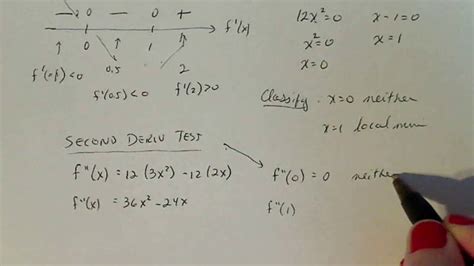 — 0 — 0 + f'(x)
↑ 0 ↑ 1 ↑
0.5 2
f'(-1) < 0 f'(0.5) < 0 f'(2) > 0
12x² = 0 x - 1 = 0
x² = 0 x = 1
x = 0
Classify. x = 0 neither
x = 1 local min
SECOND DERIV TEST
f"(x) = 12(3x²) - 12(2x)
f"(x) = 36x² - 24x
f"(0) = 0 neither
f"(1)